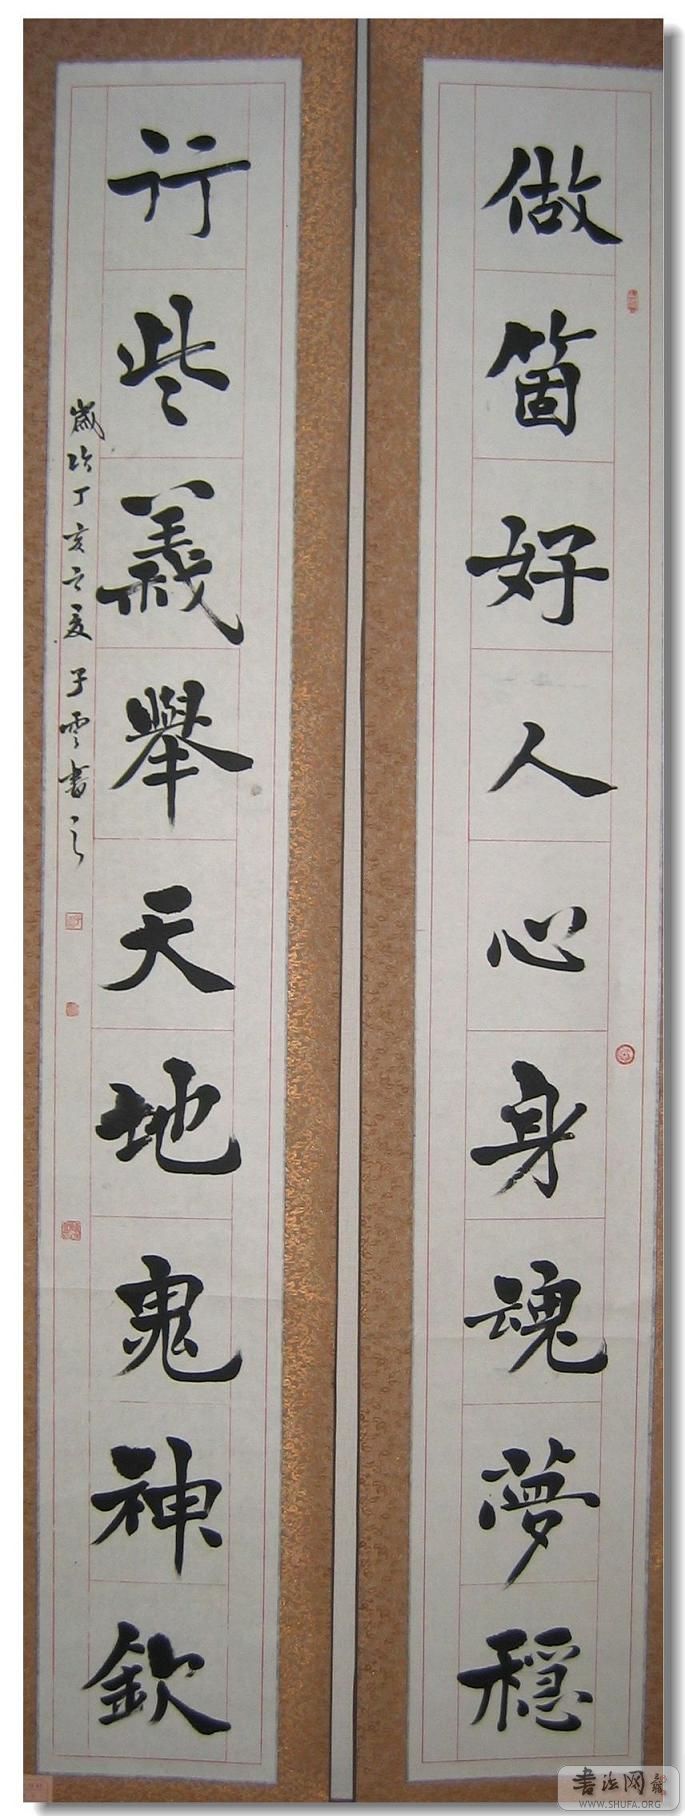 做箇好人心身魂夢穩
行些義舉天地鬼神欽
歲次丁亥之夏子雲書之
書法网
WWW.SHUFA.ORG